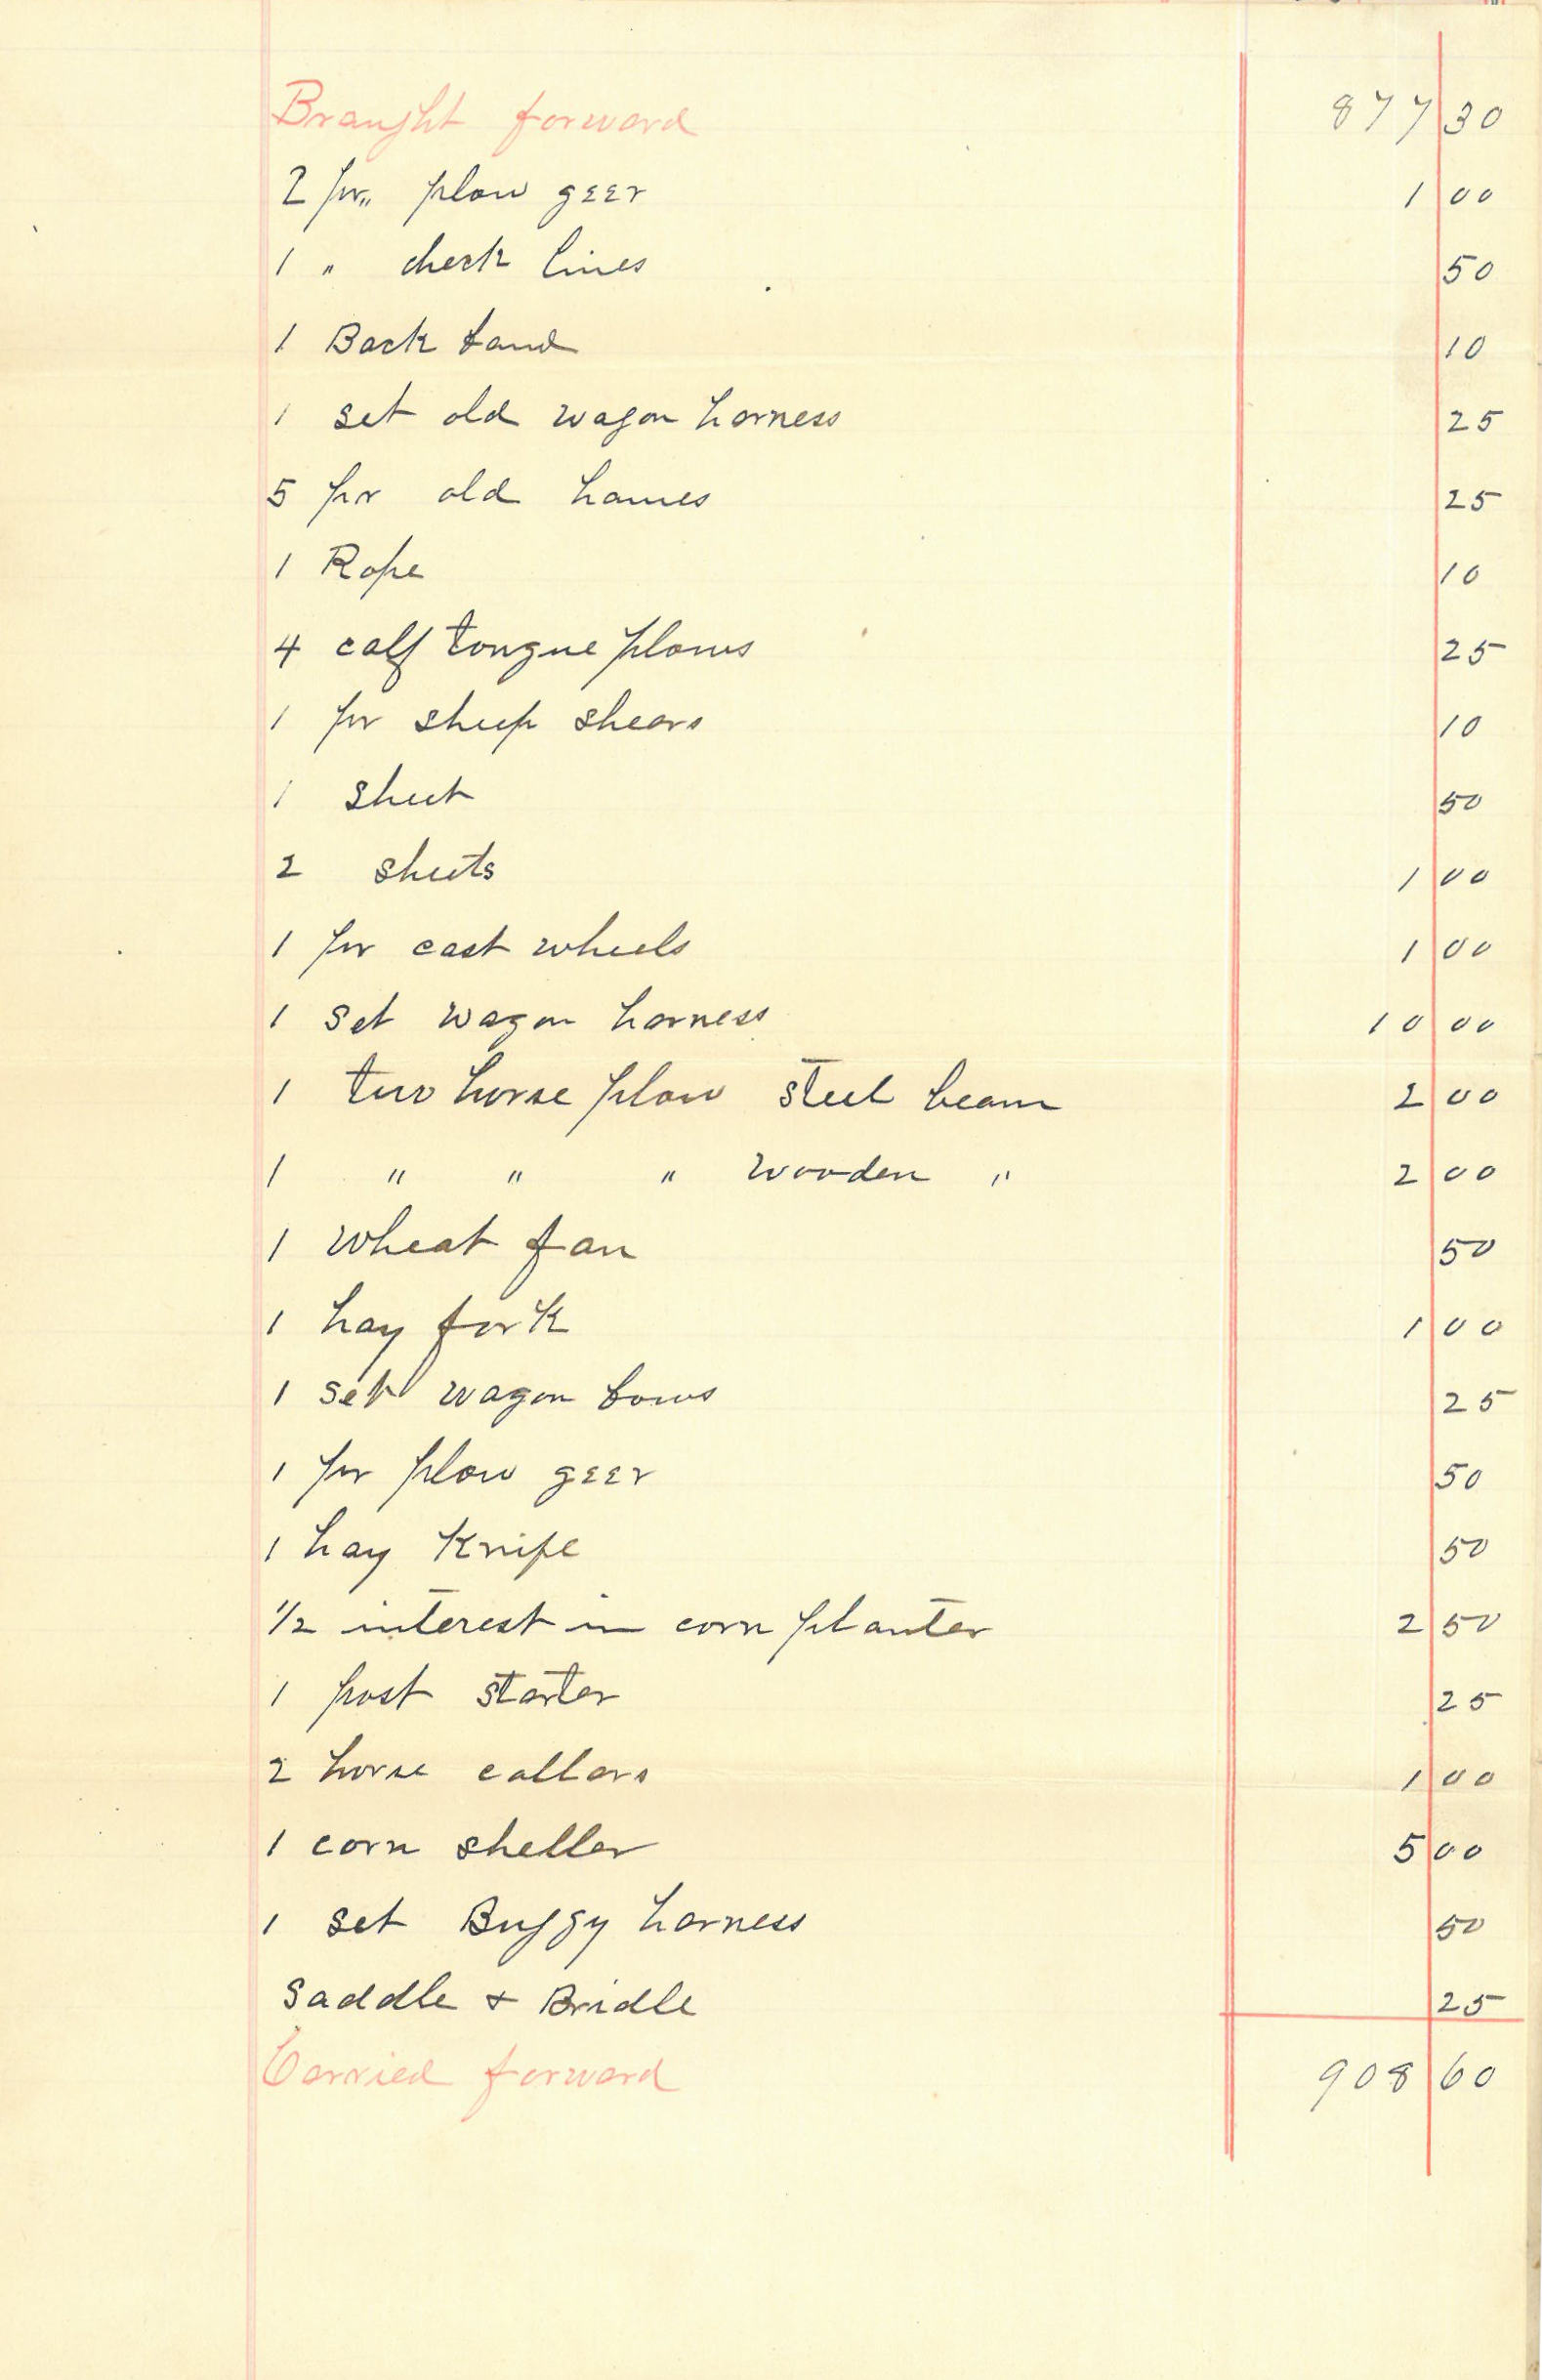 Braught forward 877 30
2 pr„ plow geer 1 00
1 „ check lines 50
1 Back band 10
1 set old wagon harness 25
5 pr old hames 25
1 Rope 10
4 calf tongue plows 25
1 pr sheep shears 10
1 sheet 50
2 sheets 1 00
1 pr cast wheels 1 00
1 set wagon harness 10 00
1 two horse plow steel beam 2 00
1 " " " wooden " 2 00
1 wheat fan 50
1 hay fork 1 00
1 set wagon bows 25
1 pr plow geer 50
1 hay Knife 50
1/2 interest in corn planter 2 50
1 post starter 25
2 horse collars 1 00
1 corn sheller 5 00
1 set Buggy harness 50
Saddle + Bridle 25
Carried forward 908 60